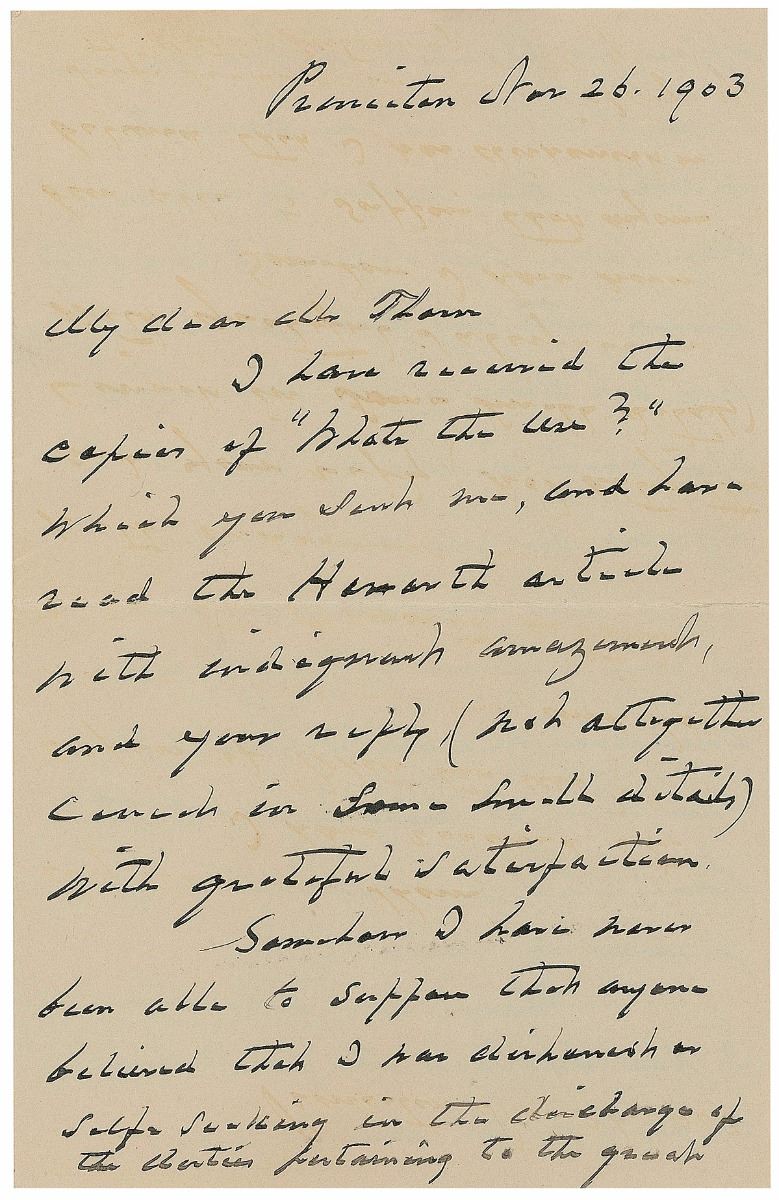 Princeton Nov 26. 1903
My dear Mr Thorn
I have received the
copies of "Whats the Use?"
which you sent me, and have
read the Haworth article
with indignant amazement,
and your reply, (not altogether
correct in some small details)
with grateful satisfaction.
Somehow I have never
been able to suppose that anyone
believed that I was dishonest or
self seeking in the discharge of
the duties pertaining to the great